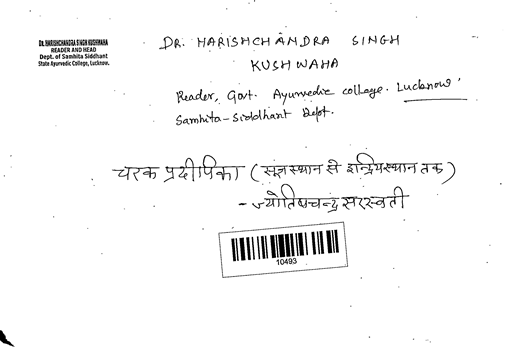 Dr. HARISHCHANDRA SINGH KUSHWAHA
READER AND HEAD
Dept. of Samhita Siddhant
State Ayurvedic College, Lucknow.
DR. HARISHCHANDRA SINGH
KUSHWAHA
Reader, Govt. Ayurvedic college. Lucknow
Samhita-Siddhant Dept.
चरक प्रदीपिका (सूत्रस्थान से इन्द्रियस्थान तक)
- ज्योतिषचन्द्र सरस्वती
10493